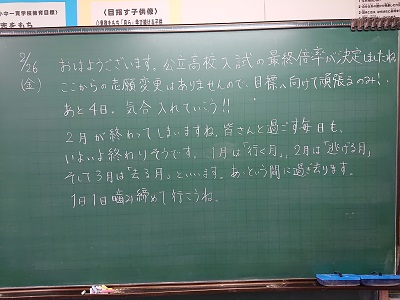 小中一貫学校教育目標
<目指す子供像>
2/26
(金)
おはようございます。公立高校入試の最終倍率が決定しましたね。
ここからの志願変更はありませんので、目標へ向けて頑張るのみ!
あと4日。気合入れていこう!!
2月が終わってしまいますね。皆さんと過ごす毎日も、
いよいよ終わりそうです。1月は「行く月」、2月は「逃げる月」
そして3月は「去る月」といいます。あっという間に過ぎ去ります。
1日1日噛み締めて行こうね。